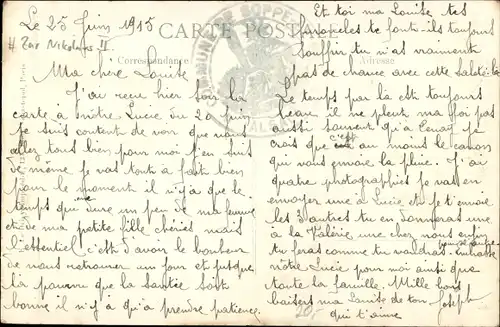 Le 25 Juin 1915
# Zar Nikolaus II
CARTE POSTALE
Correspondance
Adresse
Ma chère Louise
J'ai reçu hier soir la
carte à nôtre Lucie du 20 juin
je suis content de voir que vous
allez tous bien pour moi j'en suit
de même je vas tout à fait bien
pour le moment il n'y a que le
temps que dure un peu de ma femme
et de ma petite fille chéries mais
l'essentiel c'est d'avoir le bonheur
de nous retrouver un jour et puisque
là pourvu que la santée soit
bonne il n'y a qu'a prendre patience.
Et toi ma Louise tes
te font-ils toujours
souffrir tu n'as vraiment
pas de chance avec cette saleté là
Le temps par là est toujours
beau, il ne pleut ma foi pas
aussi souvent qu'a Cenay je
crois que c'est au moins le canon
qui vous envoie la pluie. J'ai
quatre photographies je vas en
envoyer une à Lucie et je t'envoie
les 3 autres tu en donneras une
à ta Valérie une chez nous enfin
tu feras comme tu voudras. Embrasse
nôtre Lucie pour moi ainsi que
toute la famille. Mille bons
baisers ma Louise de ton Joseph
qui t'aime
20,-